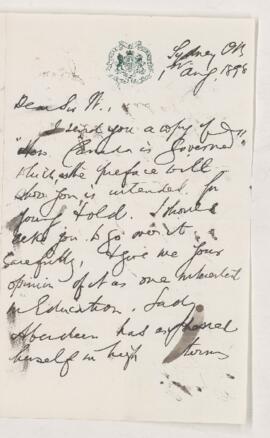 Sydney CB
1st Aug 1898
Dear Sir W.,
I send you a copy of
"How Canada is Governed"
which as the preface will
show you, is intended for
young & old. I should
ask you to go over it
carefully, & give me your
opinion of it as one interested
in Education. Lady
Aberdeen has expressed
herself in high terms